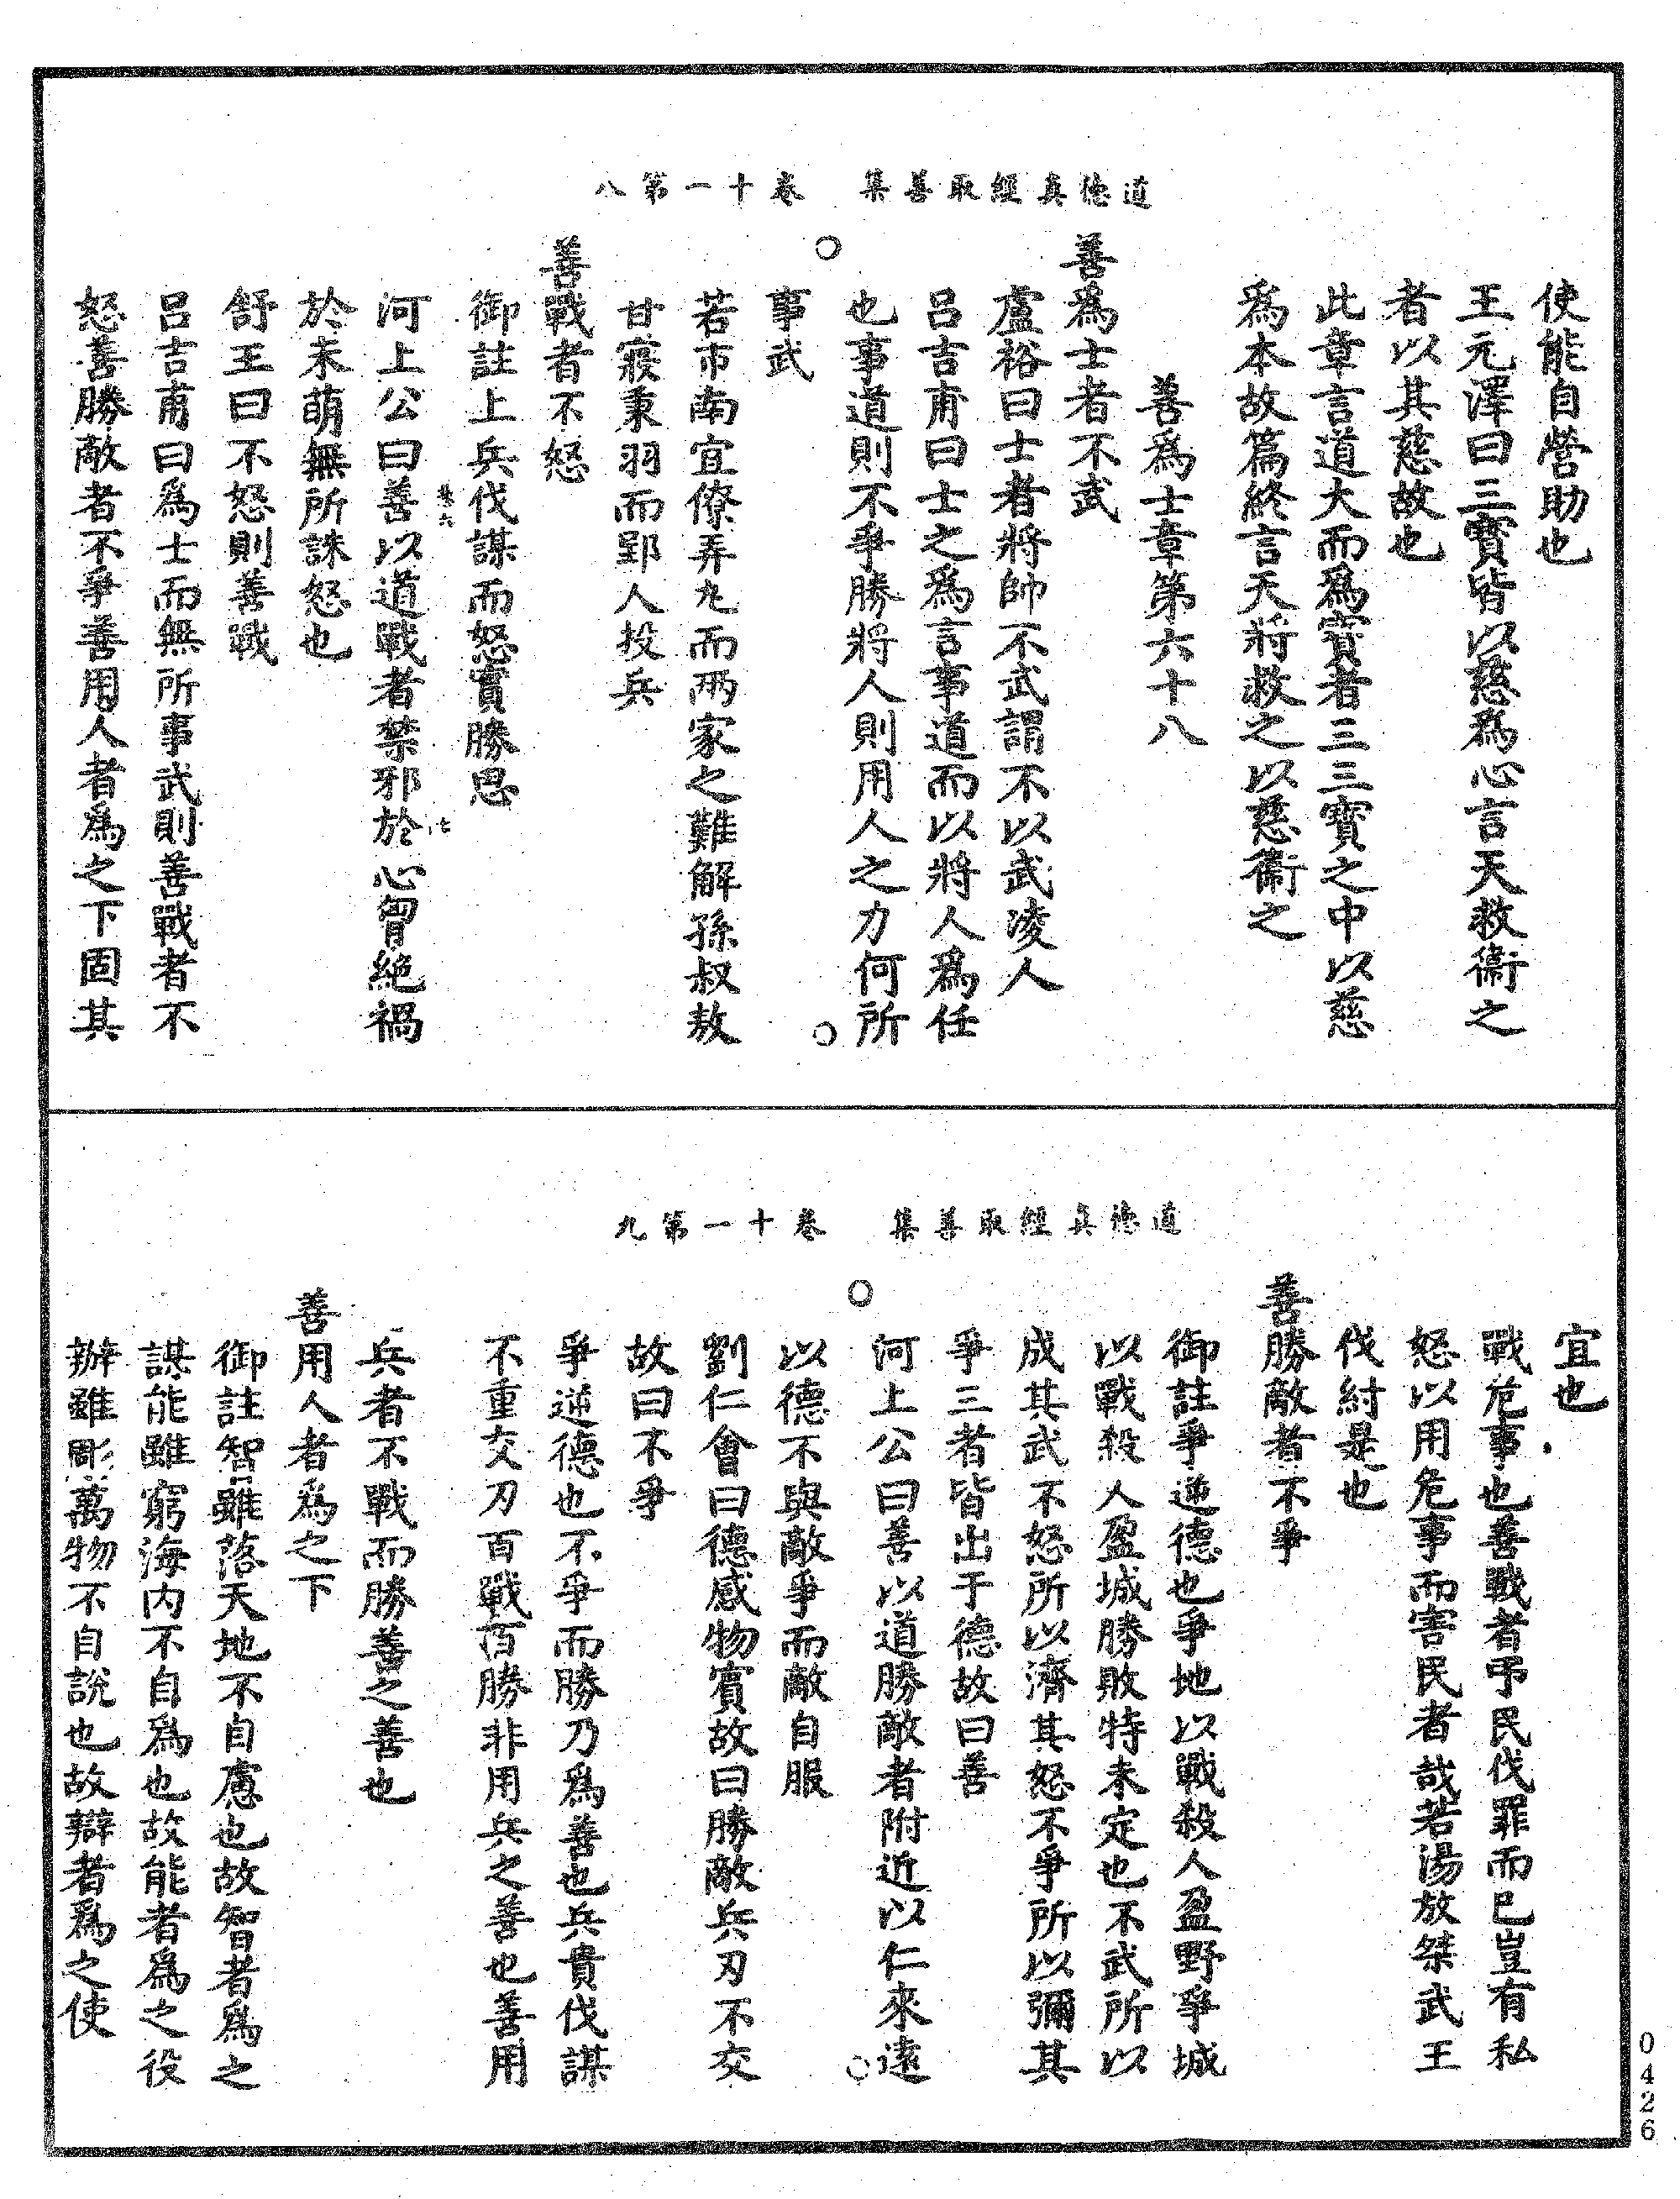 道德真經取善集　卷十一第八
使能自營助也
王元澤曰三寶皆以慈為心言天救衞之
者以其慈故也
此章言道大而為寶者三三寶之中以慈
為本故篇終言天將救之以慈衞之
善為士章第六十八
善為士者不武
盧裕曰士者將帥不武謂不以武凌人
呂吉甫曰士之為言事道而以將人為任
也事道則不爭勝將人則用人之力何所
事武
若市南宜僚弄丸而兩家之難解孫叔敖
甘寢秉羽而郢人投兵
善戰者不怒
御註上兵伐謀而怒實勝思
河上公曰善以道戰者禁邪於心胷絶禍
於未萌無所誅怒也
舒王曰不怒則善戰
呂吉甫曰為士而無所事武則善戰者不
怒善勝敵者不爭善用人者為之下固其
道德真經取善集　卷十一第九
宜也
戰危事也善戰者弔民伐罪而已豈有私
怒以用危事而害民者哉若湯放桀武王
伐紂是也
善勝敵者不爭
御註爭逆德也爭地以戰殺人盈野爭城
以戰殺人盈城勝敗特未定也不武所以
成其武不怒所以濟其怒不爭所以彌其
爭三者皆出于德故曰善
河上公曰善以道勝敵者附近以仁來遠
以德不與敵爭而敵自服
劉仁會曰德感物賓故曰勝敵兵刃不交
故曰不爭
爭逆德也不爭而勝乃為善也兵貴伐謀
不重交刃百戰百勝非用兵之善也善用
兵者不戰而勝善之善也
善用人者為之下
御註智雖落天地不自慮也故智者為之
謀能雖窮海内不自為也故能者為之役
辦雖彫萬物不自說也故辯者為之使
0426